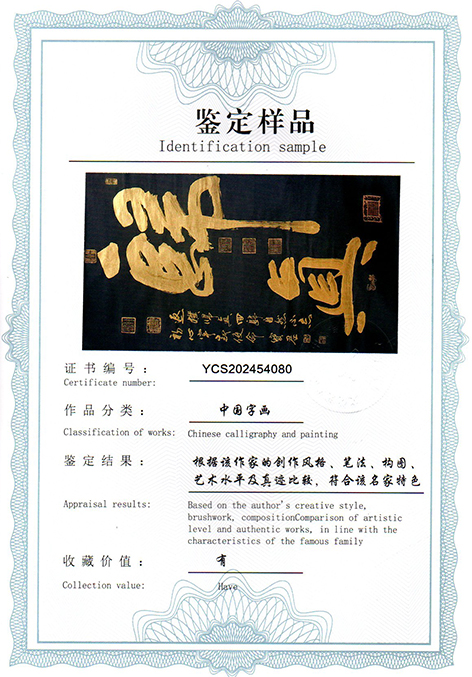 鉴定样品
Identification sample
歸真
证书编号： YCS202454080
Certificate number:
作品分类： 中国字画
Classification of works: Chinese calligraphy and painting
鉴定结果： 根据该作家的创作风格、笔法、构图、
艺术水平及真迹比较，符合该名家特色
Appraisal results: Based on the author's creative style,
brushwork, compositionComparison of artistic
level and authentic works, in line with the
characteristics of the famous family
收藏价值： 有
Collection value: Have